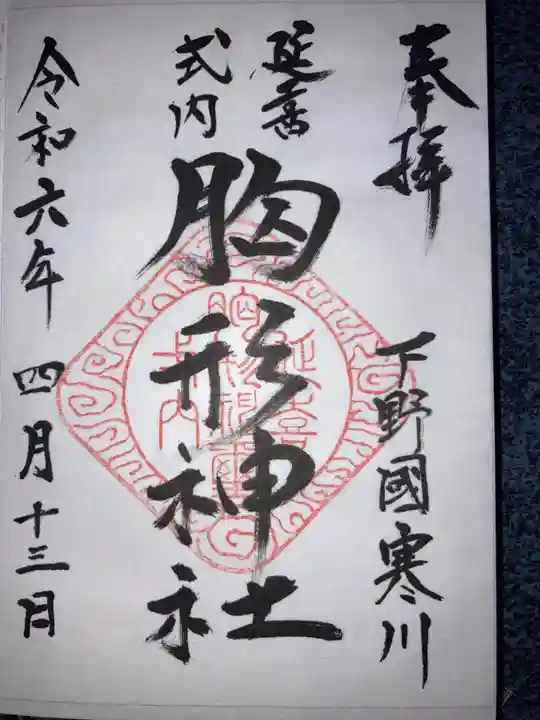 奉拝
下野國寒川
延喜
式内
胸形神社
令和六年四月十三日